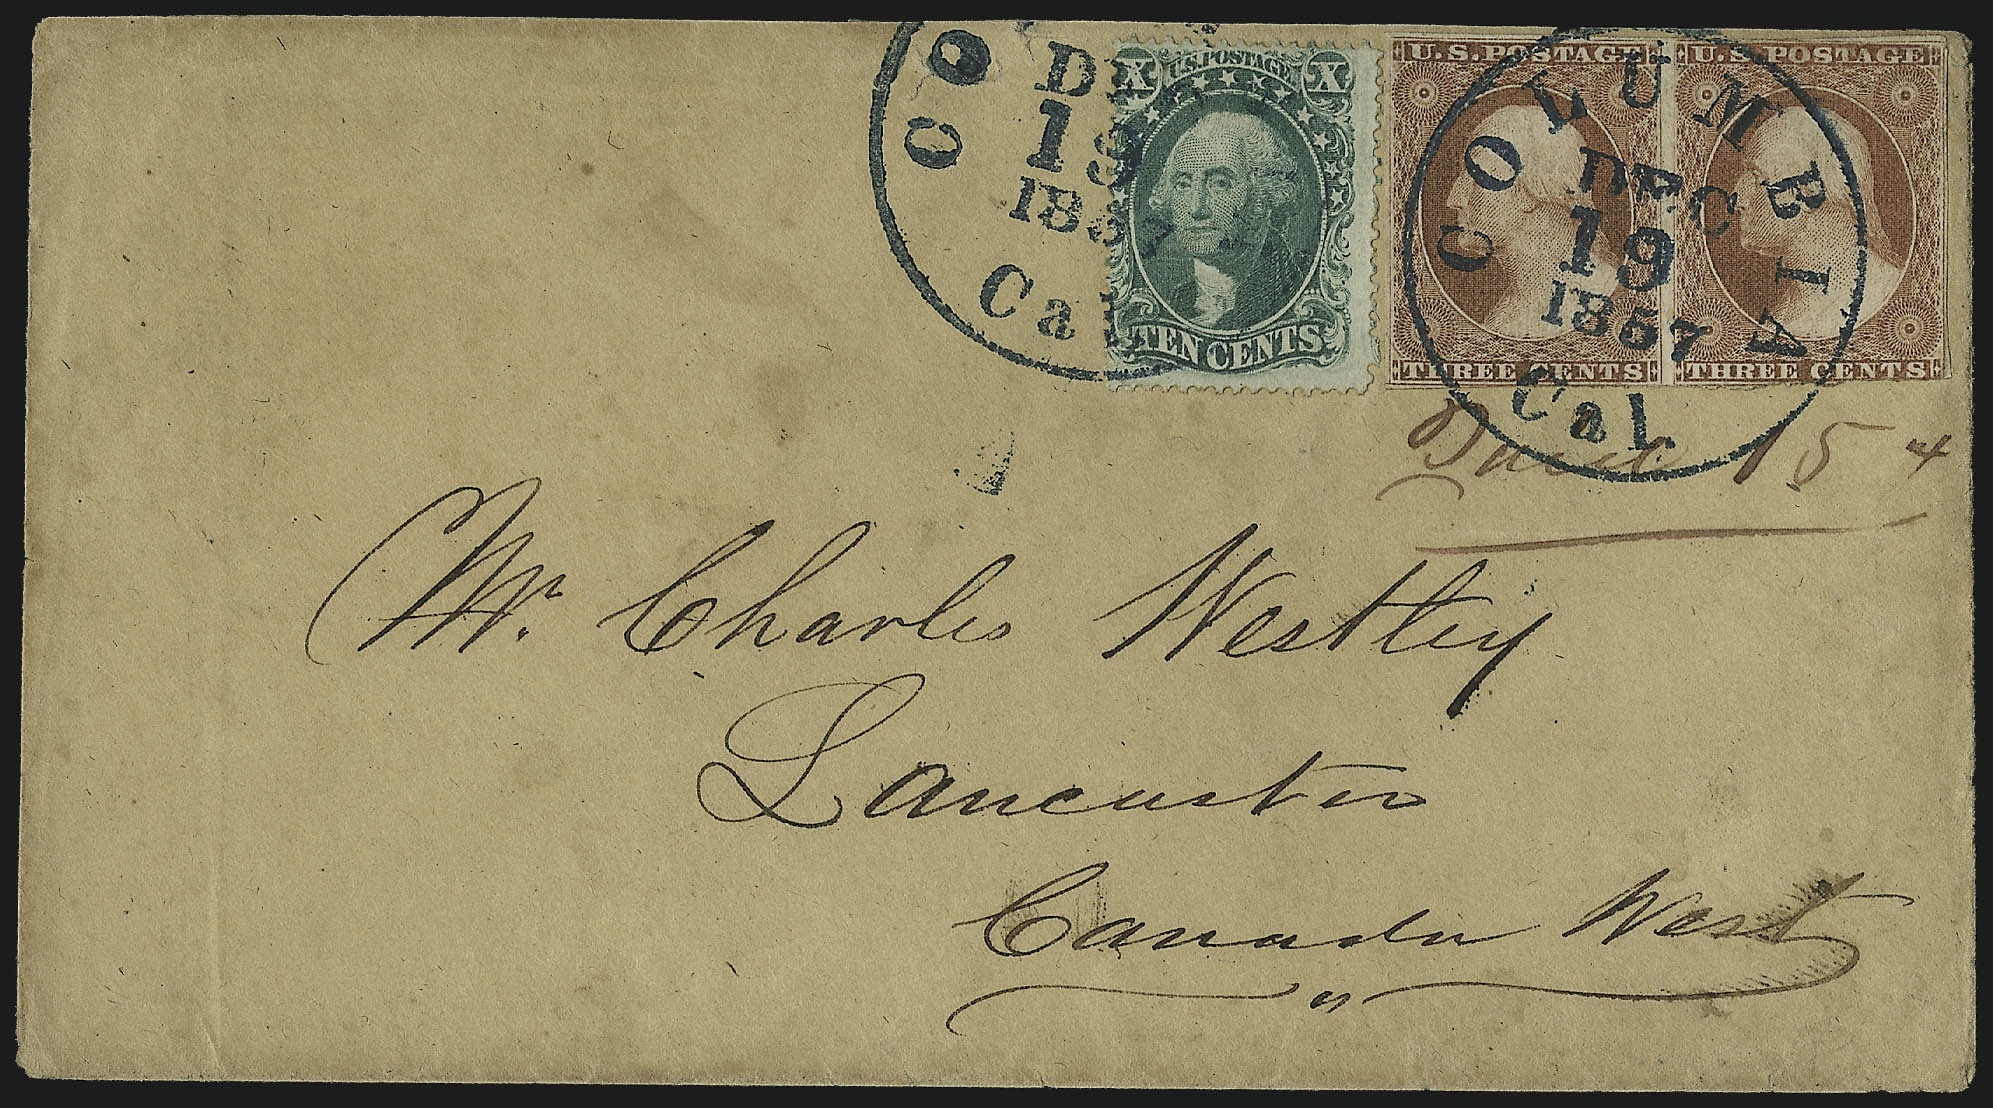 CO
DE
19
1857
Cal
X U.S. POSTAGE X
TEN CENTS
U.S. POSTAGE
THREE CENTS
U.S. POSTAGE
THREE CENTS
COLUMBIA
DEC
19
1857
Cal.
15
Mr. Charles Westley
Lancaster
Canada West